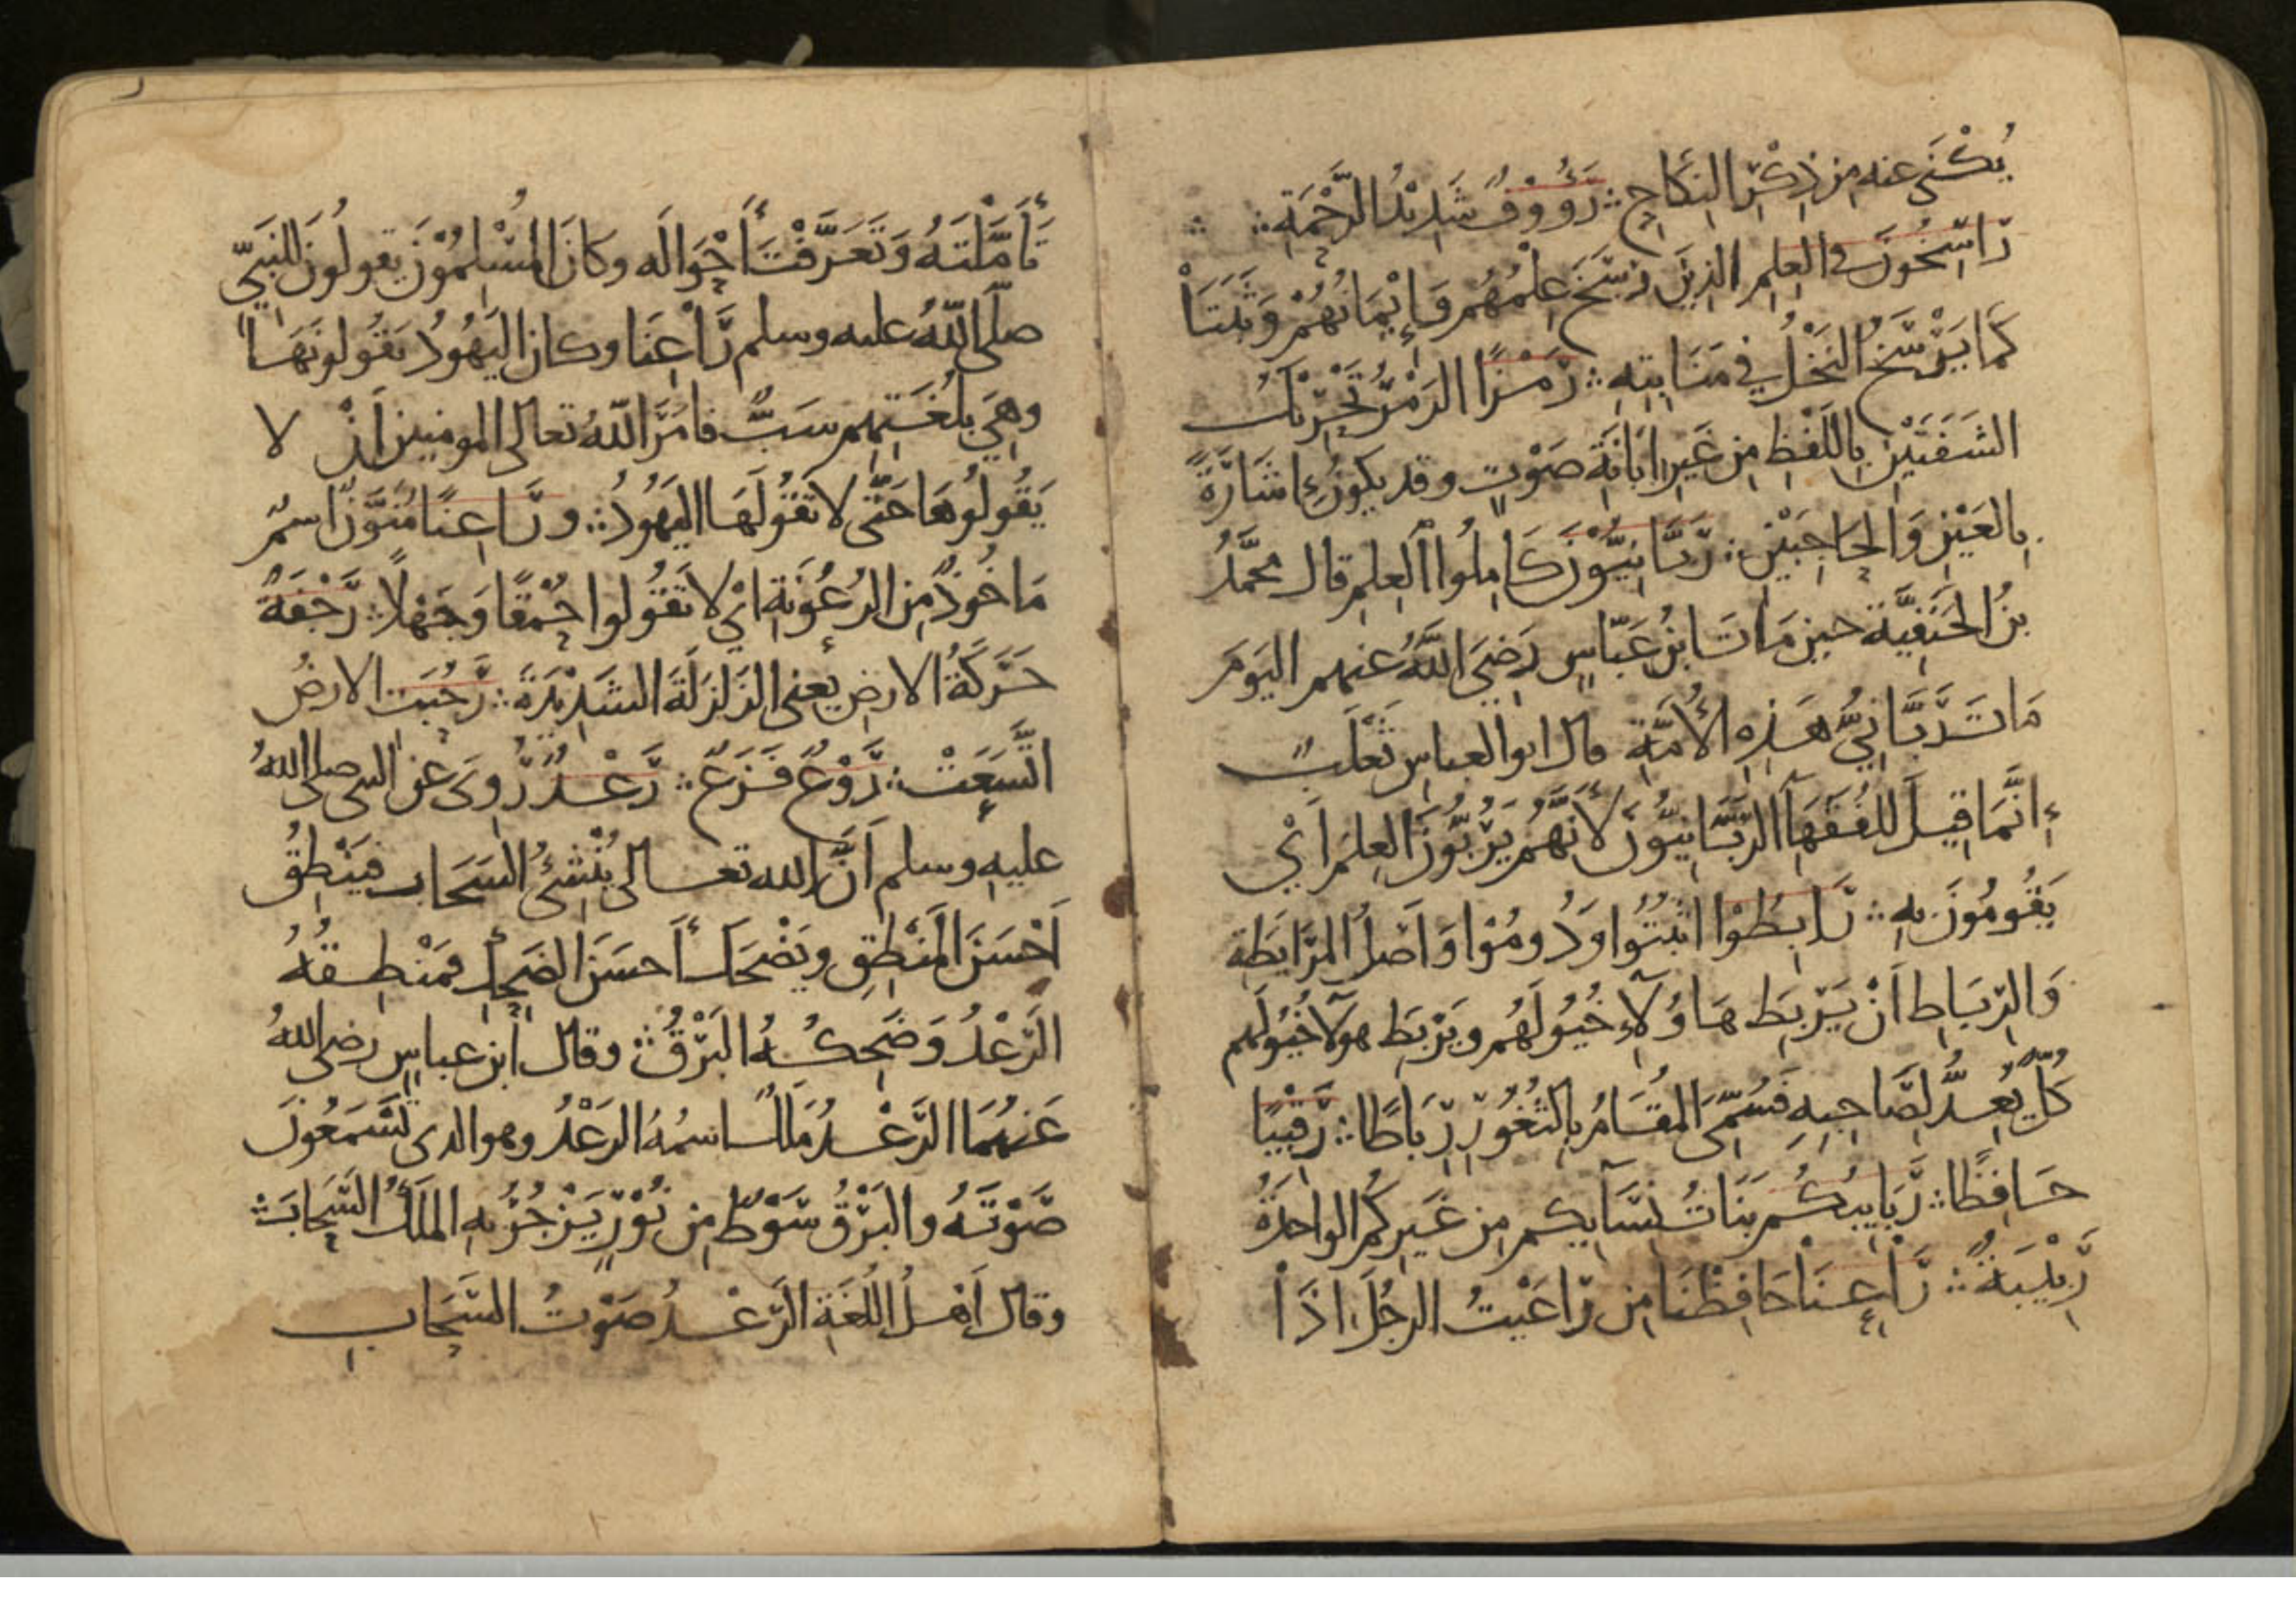 يُكْنَى عنه مِن ذِكْرِ النِكَاحِ ۞ رَؤُوْفٌ شَدِيْدُ الرَّحْمَةِ ۞
رَاسِخُونَ في العِلمِ الذِينَ رَسَخَ عِلْمُهُم وَإِيْمَانُهُمْ وَثَبَتَا
كَمَا يَرْسَخُ النَخْلُ في مَنَابِتِهِ ۞ رَمْزًا الرَمْزُ تَحْرِيْكُ
الشَفَتَيْنِ بِاللَفْظِ مِن غَيرِ ابَانَةِ صَوْتٍ وقد يكونُ إِشَارَةً
بِالعَيْنِ وَالحَاجِبَيْنِ ۞ رَبَّانِيُّوْنَ كَامِلُوا العِلمِ قال محمَّدُ
بنُ الحَنَفِيَّة حين مَاتَ ابنُ عَبّاسٍ رَضِيَ اللَّهُ عنهم اليَومَ
مَاتَ رَبَّانِيُّ هَذِهِ الأُمَّةِ قال ابو العباسِ ثَعْلَبٌ
إِنَّمَا قِيلَ للفُقَهَآ الرَبَّانِيُّونَ لأَنَّهُم يَرُبُّونَ العِلمَ أَيْ
يَقُومُونَ بِهِ ۞ رَابِطُوْا اثبُتُوا وَدُومُوْا وَاَصْلُ المرَابَطَةِ
وَالرِبَاطِ اَنْ يَرْبِطَ هَاؤُلَآءِ خُيُولَهُم ويَرْبِطَ هولآ خُيُولَهم
كُلٌّ يُعِدُّ لِصَاحِبِهِ فَسُمِّيَ المقَامُ بِالثُغُوْرِ رِبَاطًا ۞ رَقِيْبًا
حَافِظًا ۞ رَبَايِبُكُم بَنَاتُ نِسَآيِكم مِن غَيرِكُم الواحِدَةُ
رَبِيْبَةٌ ۞ رَاعِنَا حَافِظْنَا مِن رَاعَيْتُ الرجُلَ اذَا
تَأَمَّلْتَهُ وَتَعَرَّفْتَ أَحْوَالَه وكانَ المُسْلِمُوْنَ يقولُونَ للنَبِيِّ
صلَّى اللّهُ عليه وسلم رَاعِنَا وكان اليَهُودُ يَقُولونَهَا
وهِيَ بِلُغَتِهِم سَبٌّ فامَرَ اللهُ تعالى المومنين أَنْ لا
يَقُولُوهَا حَتَّى لا تَقُولَهَا اليَهُودُ ۞ ورَاعِنًا مُنَوَّنٌ اسمٌ
مَاخُوذٌ مِن الرُعُوْنَةِ ايْ لا تَقُولوا حُمْقًا وَجَهْلًا ۞ رَجْفَةٌ
حَرَكَةُ الارضِ يعنِي الزَلزَلَةَ الشَدِيْدَةَ ۞ رَحُبَت الارضُ
اتَّسَعَتْ ۞ رَوْعٌ فَزَعٌ ۞ رَعْدٌ رُوِيَ عن النبي صلى اللهُ
عليهِ وسلم اَنَّ الله تعالى يُنْشِئُ السَحَابَ فيَنْطِقُ
اَحْسَنَ المَنْطِقِ ويَضْحَكُ أَحسَنَ الضَحِكِ فمَنْطِقُهُ
الرَعْدُ وَضَحِكُهُ البَرْقُ ۞ وقال ابن عباسٍ رضي اللهُ
عَنهُمَا الرَّعْدُ مَلَكٌ اسمُهُ الرَعْدُ وهو الذي تَسْمَعُونَ
صَوْتَهُ والبَرْقُ سَوْطٌ مِن نُوْرٍ يَزْجُرُ بهِ المَلَكُ السَحَابَ ۞
وقال اَهلُ اللُغَةِ الرَعْدُ صَوْتُ السَحَابِ